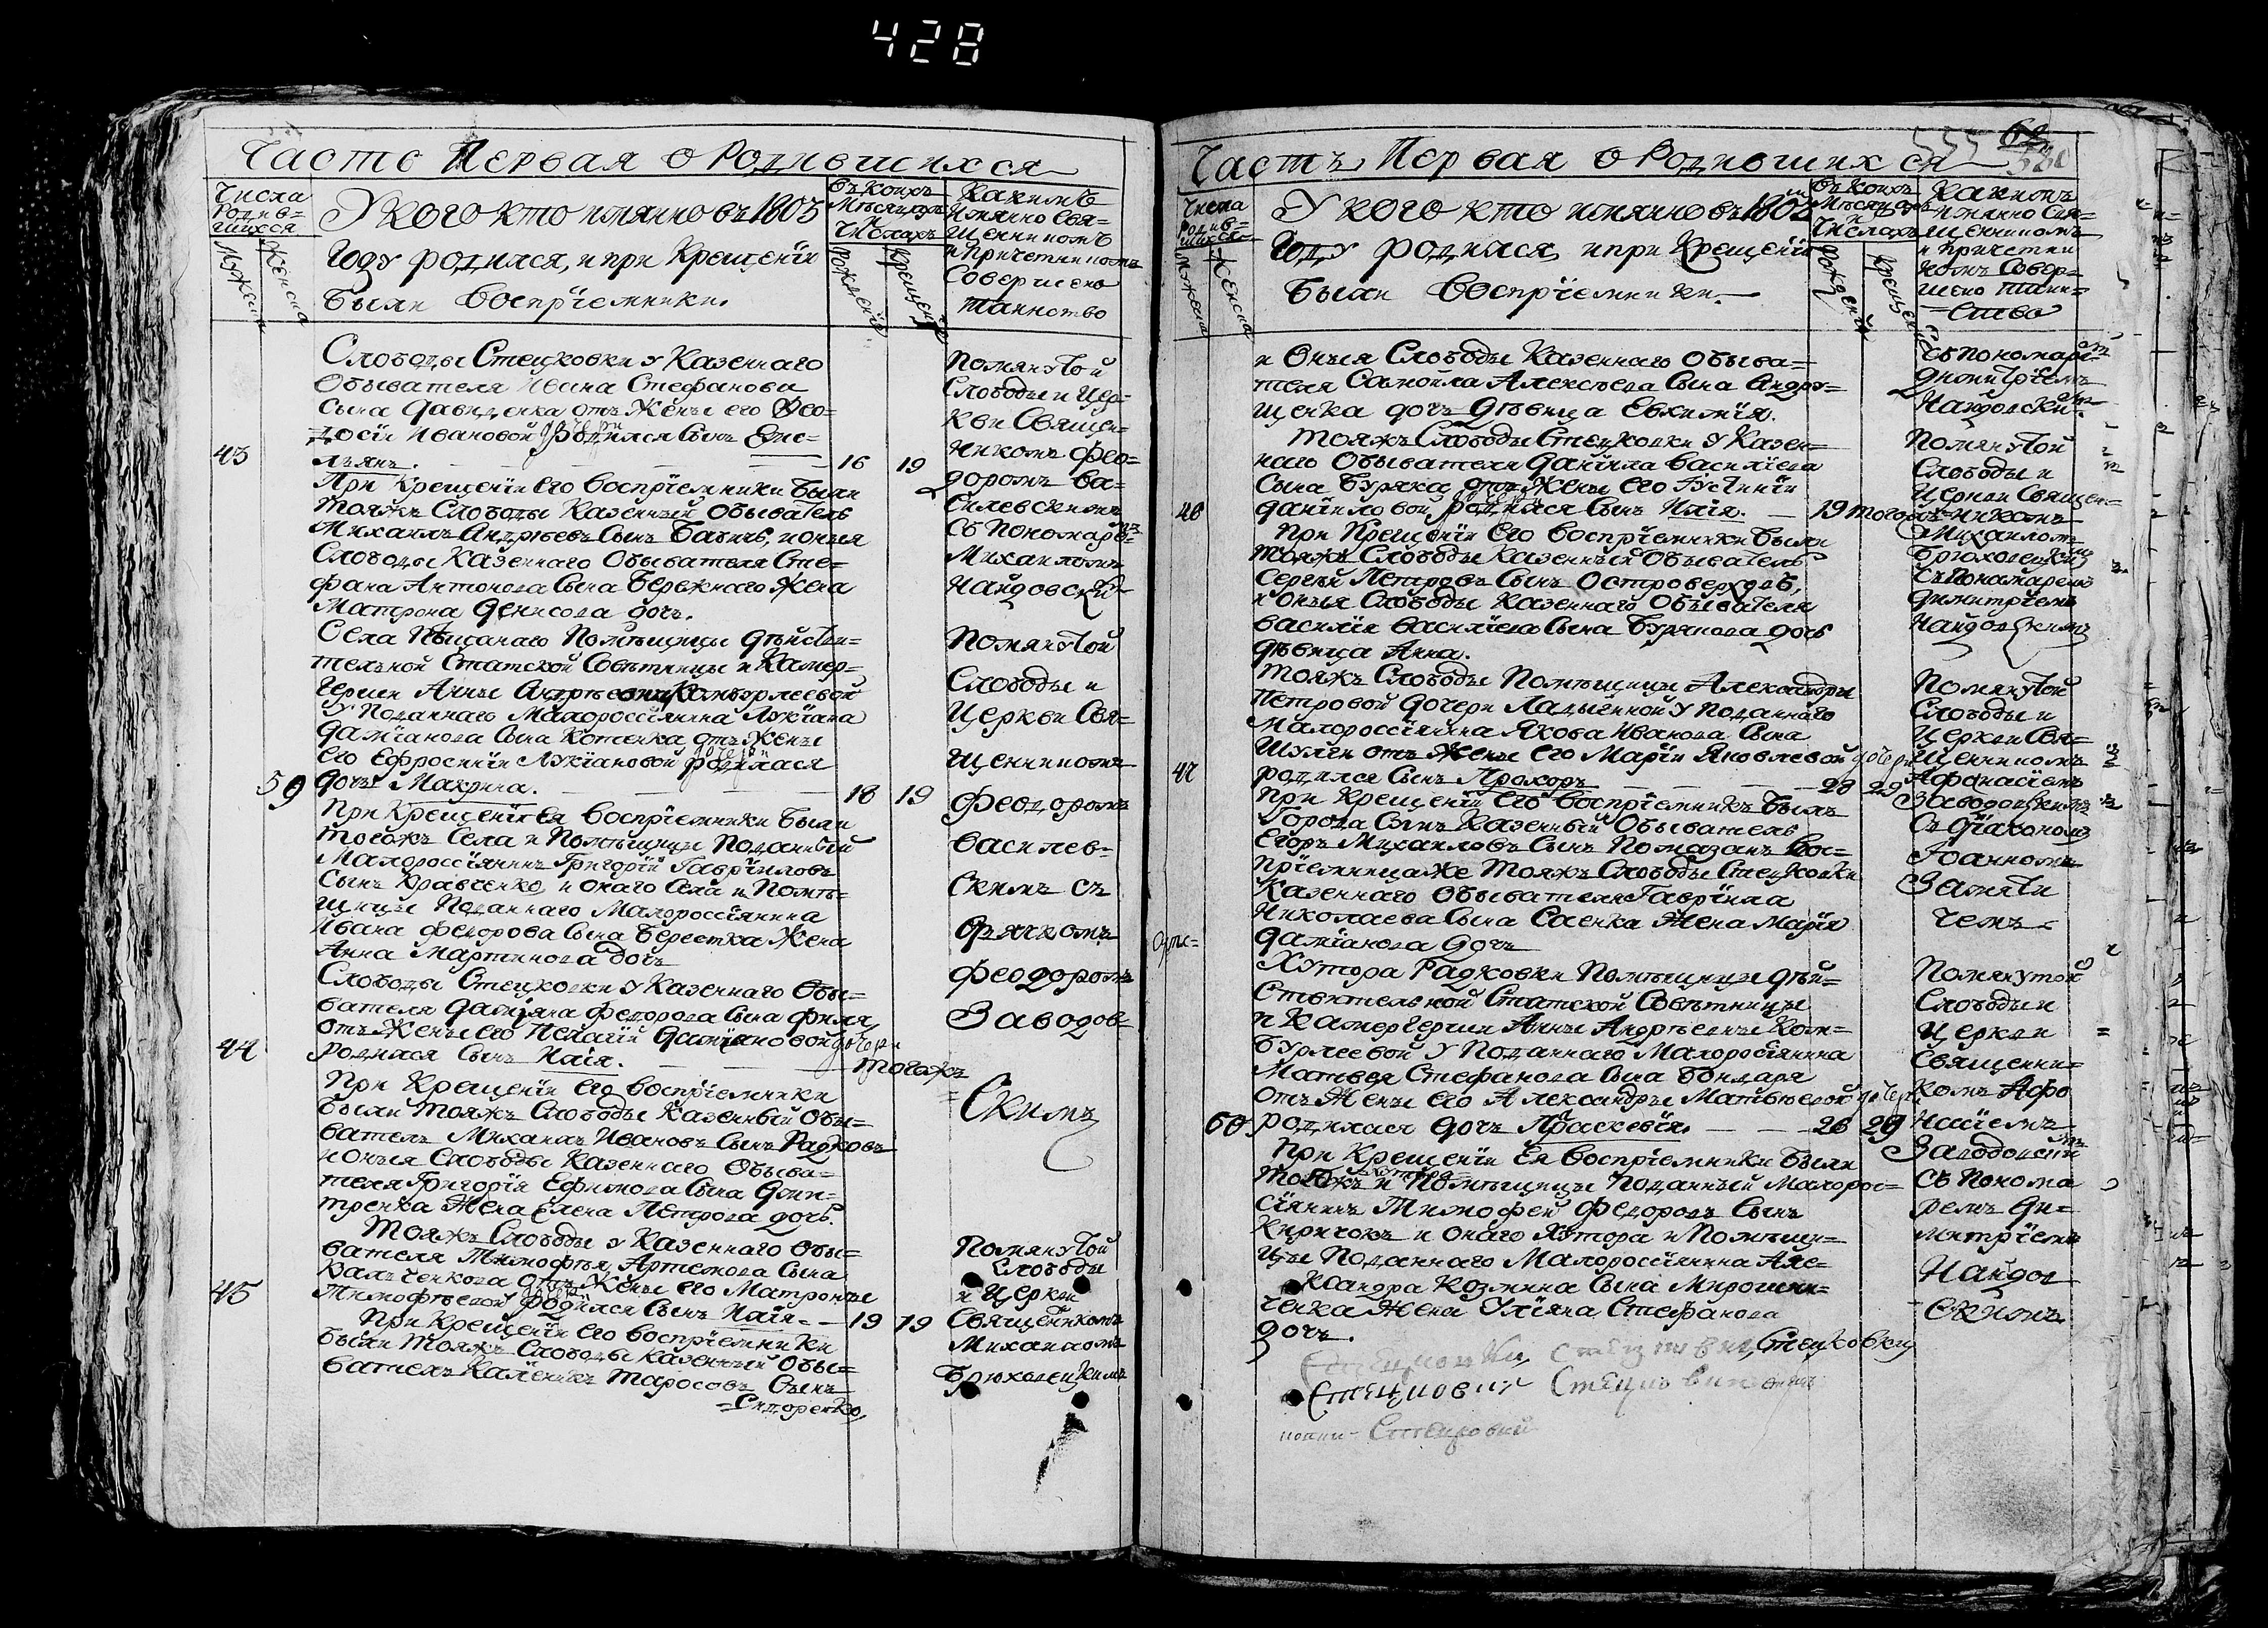 428
Часть Первая о Родившихся
Числа Родив=шихся
Мужеска
Женска
У кого кто имянно въ 1805
Году родился, и при Крещенїи
были воспрїемники.
Въ коихъ Месяцахъ Числахъ
Рожденїе
Крещенїе
Какимъ
имянно Свя=
щенникомъ
и Причетникомъ
Совершено
таинство
Слободы Стецковки у Казеннаго
Обывателя Ивана Стефанова
Сына Давиденка отъ Жены его Фео=
досїи Ивановой дочери родился Сынъ Еме=
43 льянъ. 16 19
При Крещенїи Его воспрїемники были
тояжъ Слободы Казенный Обыватель
Михаилъ Андреевъ Сынъ Бабичъ, и оныя
Слободы Казеннаго Обывателя Сте=
фана Антонова Сына Бережнаго Жена
Матрона Денисова дочь.
Помянутой
Слободы и Цер=
кви Священ=
никомъ Фео=
доромъ Ва=
силевскимъ
Съ Пономаремъ
Михаиломъ
Найдовским
Села Песчанаго Помещицы действи=
тельной Статской Советницы и Камер=
герши Анны Андреевны Комбурлеевой
у Подданнаго Малороссїянина Лукїана
Дамїанова Сына Котенка отъ Жены
Его Ефросинїи Лукїановой дочери родилася
59 дочь Макрина. 18 19
При Крещенїи Ея воспрїемники были
тогожъ Села и Помещицы Подданный
Малороссїянинъ Григорїй Гаврїиловъ
Сынъ Кравченко, и онаго Села и Поме=
щицы Подданнаго Малороссїянина
Ивана Федорова Сына Берестка Жена
Анна Мартинова дочь
Помянутой
Слободы и
Церкви Свя=
щенникомъ
Феодоромъ
Василев=
скимъ съ
Дячкомъ
Феодоромъ
Заводов=
скимъ
Слободы Стецковки у Казеннаго Обы=
вателя Дамїяна Федорова Сына Филя
отъ Жены его Пелагїи Дамїановой дочери
44 родился Сынъ Илїя. тогожъ
При Крещенїи Его воспрїемники
были тояжъ Слободы Казенный Обы=
ватель Михаилъ Ивановъ Сынъ Радковъ
и оныя Слободы Казеннаго Обыва=
теля Григорїя Ефимова Сына Дми=
тренка Жена Елена Петрова дочь.
Тояжъ Слободы у Казеннаго Обы=
вателя Тимофея Артемова Сына
Валченкова отъ Жены Его Матроны
45 Тимофеевой дочери родился Сынъ Илїя. 19 19
При Крещенїи Его воспрїемники
были тояжъ Слободы Казенный Обы=
ватель Каленикъ Тарасовъ Сынъ
=Сидоренко,
Помянутой
Слободы
и Церкви
Священикомъ
Михаиломъ
Брюховецкимъ
Часть Первая о Родившихся
Числа Родив=шихся
Мужеска
Женска
У кого кто имянно въ 1805м
Году родился, и при Крещенїи
были воспрїемники.
Въ коихъ Месяцахъ и Числахъ
Рожденїе
Крещенїе
Какимъ
имянно Свя=
щенникомъ
и причетни
комъ Совер=
шено таин=
ство
и Оныя Слободы Казеннаго Обыва=
теля Самойла Алексеева Сына Андрю=
щенка дочь девица Евхимїя.
съ пономарем
Димитрїемъ
Найдовским
Тояжъ Слободы Стецковки у Казен=
наго Обывателя Данїила Василїева
Сына Буряка отъ Жены Его Густинїи
46 Данїиловой дочери родился Сынъ Илїя. 19 тогожъ
При Крещенїи Его воспрїемники были
тояжъ Слободы Казенный Обыватель
Сергей Петровъ Сынъ Островерховъ,
и оныя Слободы Казеннаго Обывателя
Василїя Василїева Сына Бурякова дочь
девица Анна.
Помянутой
Слободы и
Церкви Священ=
никомъ
Михаиломъ
Брюховецким
съ Пономаремъ
Димитрїемъ
Найдовскимъ
Тояжъ Слободы Помещицы Александры
Петровой дочери Ладыгиной у Подданнаго
Малороссїянина Якова Иванова Сына
Шулги отъ Жены Его Марїи Яковлевой дочери
47 родился Сынъ Прохоръ 28 29
При Крещенїи Его воспрїемникъ былъ
Города Сумъ Казенный Обыватель
Егоръ Михаиловъ Сынъ Помазанъ Вос=
прїемницаже тояжъ Слободы Стецковки
Казеннаго Обывателя Гаврїила
Николаева Сына Саенка Жена Марїя
Дамїанова дочь
Помянутой
Слободы и
Церкви Свя=
щенникомъ
Афанасїемъ
Заводовскимъ
съ Дїакономъ
Іоанномъ
Замяти
Хутора Радковки Помещицы дей=
ствительной Статской Советницы
и Камергерши Анны Андреевны Ком=
бурлеевой у Подданнаго Малоросїянина
Матвея Стефанова Сына Бондаря
отъ Жены его Александры Матвеевой дочери
60 родилася дочь Праскевїя. 28 29
При Крещенїи Ея воспрїемники были
тогожъ хутора и Помещицы Подданный Малорос=
сїянинъ Тимофей Федоровъ Сынъ
Киричокъ и онаго Хутора и Помещи=
цы Подданнаго Малороссїянина Але=
ксандра Козмина Сына Мирошни=
ченка Жена Улїяна Стефанова
дочь.
Помянутой
Слободы и
Церкви
Священни=
комъ Афа
насїемъ
Заводовским
съ Понома
ремъ Ди=
митрїемъ
Найдов
скимъ.
Стецковки
Стецковки